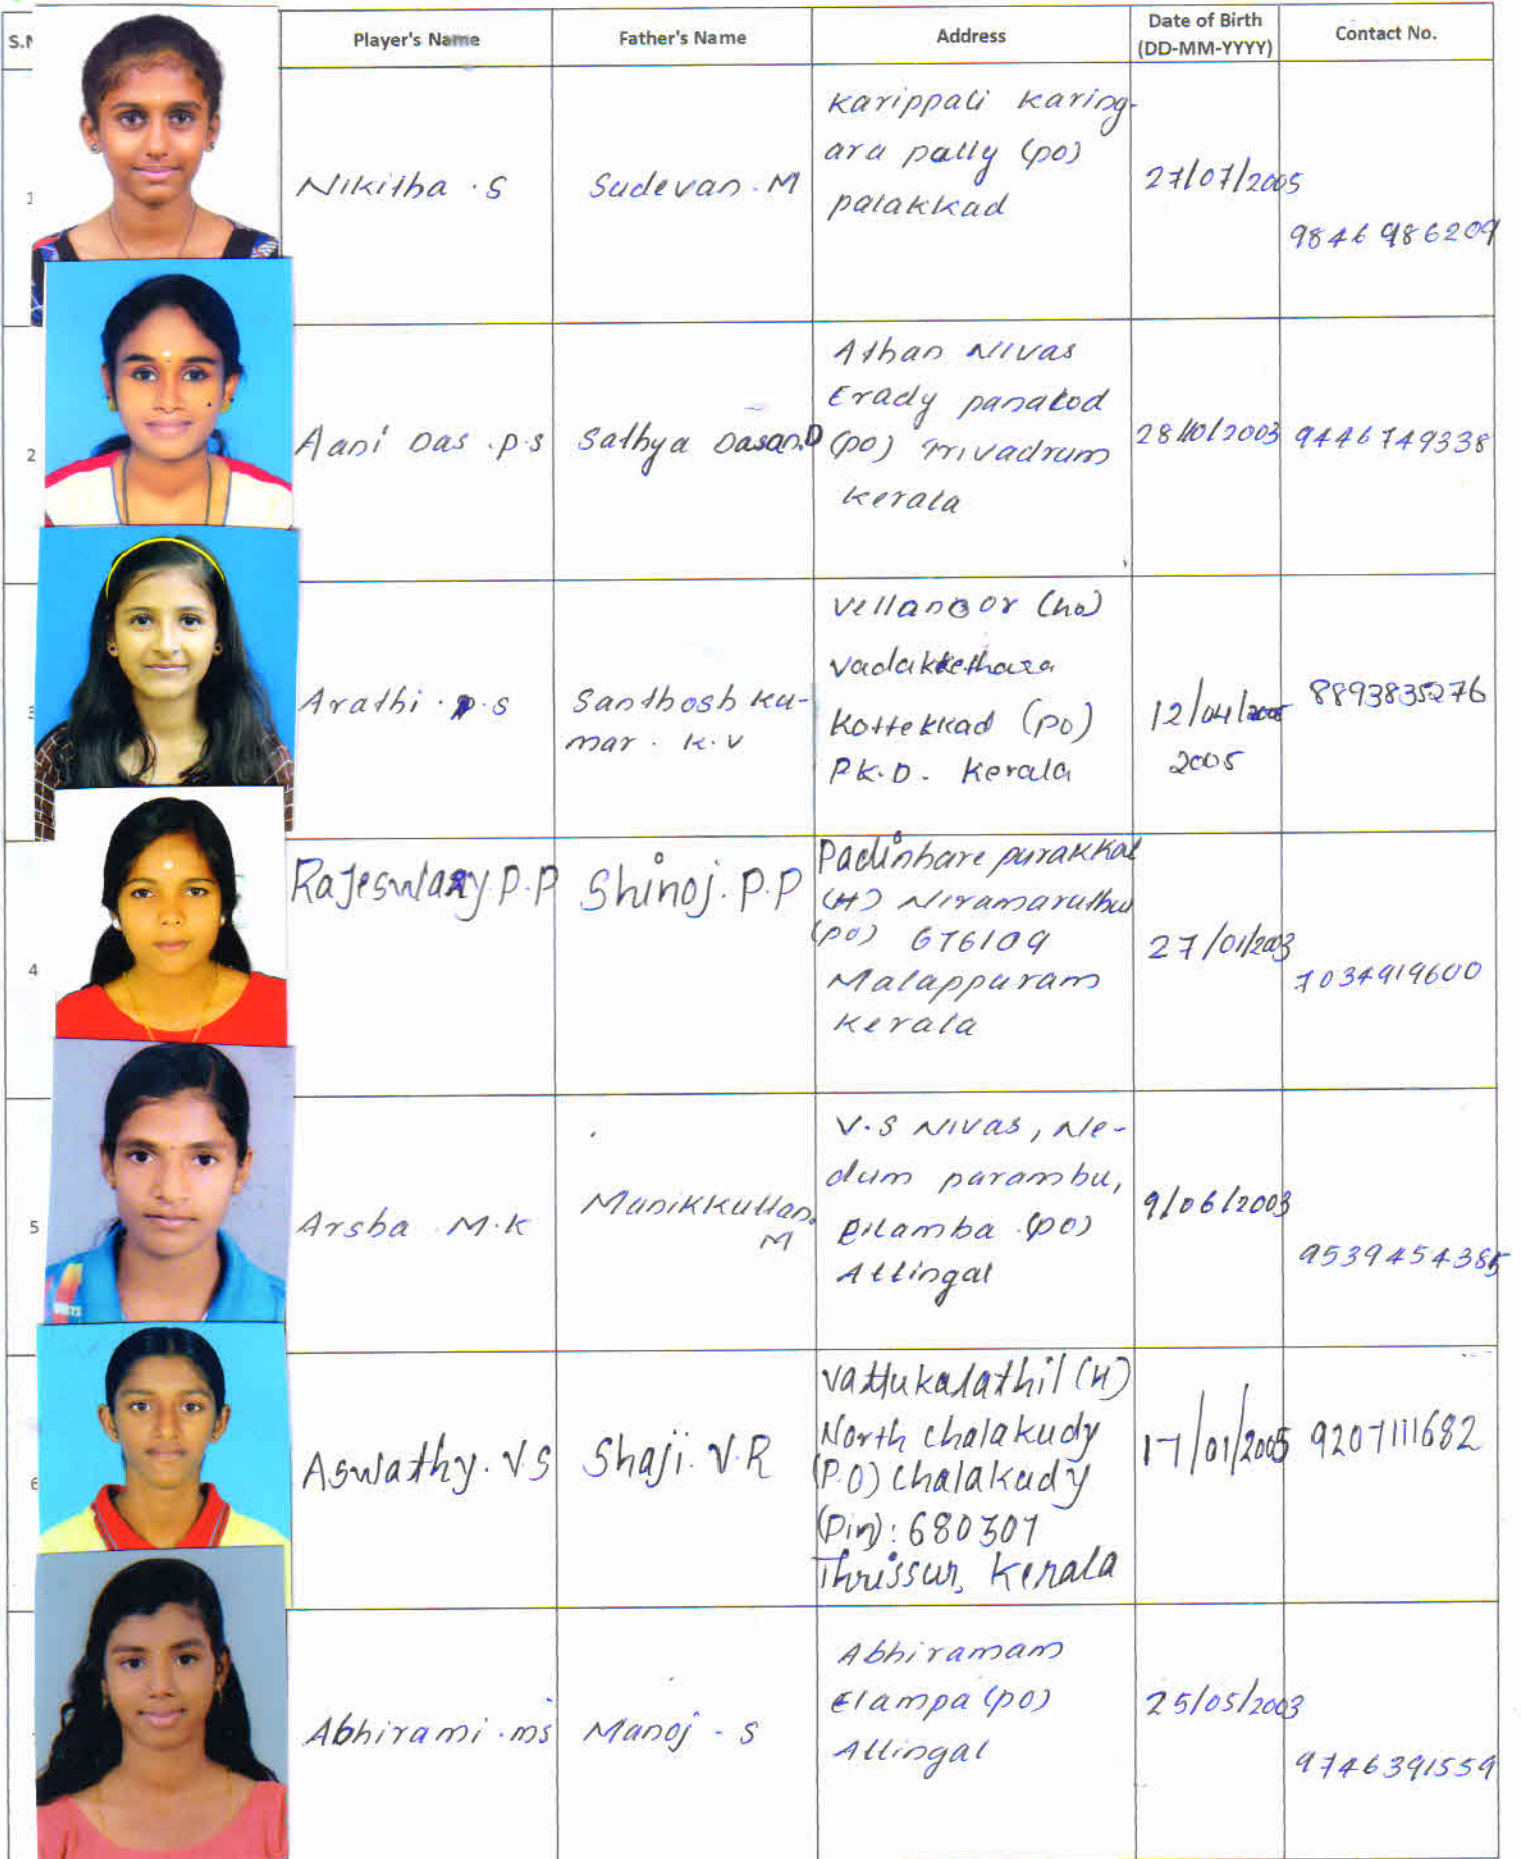 S.N
Player's Name
Father's Name
Address
Date of Birth
(DD-MM-YYYY)
Contact No.
1
Nikitha . S
Sudevan . M
Karippali Karing-
ara pally (po)
palakkad
27/07/2005
9846986209
2
Aani Das . p.s
Sathya Dasan.D
Athan Nivas
Erady panakod
(po) Trivadrum
Kerala
28/10/2003
9446749338
3
Arathi . p.s
Santhosh ku-
mar . K.V
Vellanoor (ho)
vadakkethara
Kottekkad (po)
PK.D. Kerala
12/04/
2005
8893835276
4
Rajeswary P.P
Shinoj. P.P
Padinhare purakkal
(H) Niramaruthur
(po) 676109
Malappuram
Kerala
27/01/2003
7034919600
5
Arsha M.K
Manikkuttan.
M
V.S Nivas, Ne-
dum parambu,
(po)
Attingal
9/06/2003
9539454385
6
Aswathy. V S
Shaji. V.R
Vattukalathil (H)
North chalakudy
(P.O) chalakudy
(Pin): 680307
Thrissur, Kerala
17/01/2005
9207111682
Abhirami . ms
Manoj - S
Abhiramam
Elampa (po)
Attingal
25/05/2003
9746391559